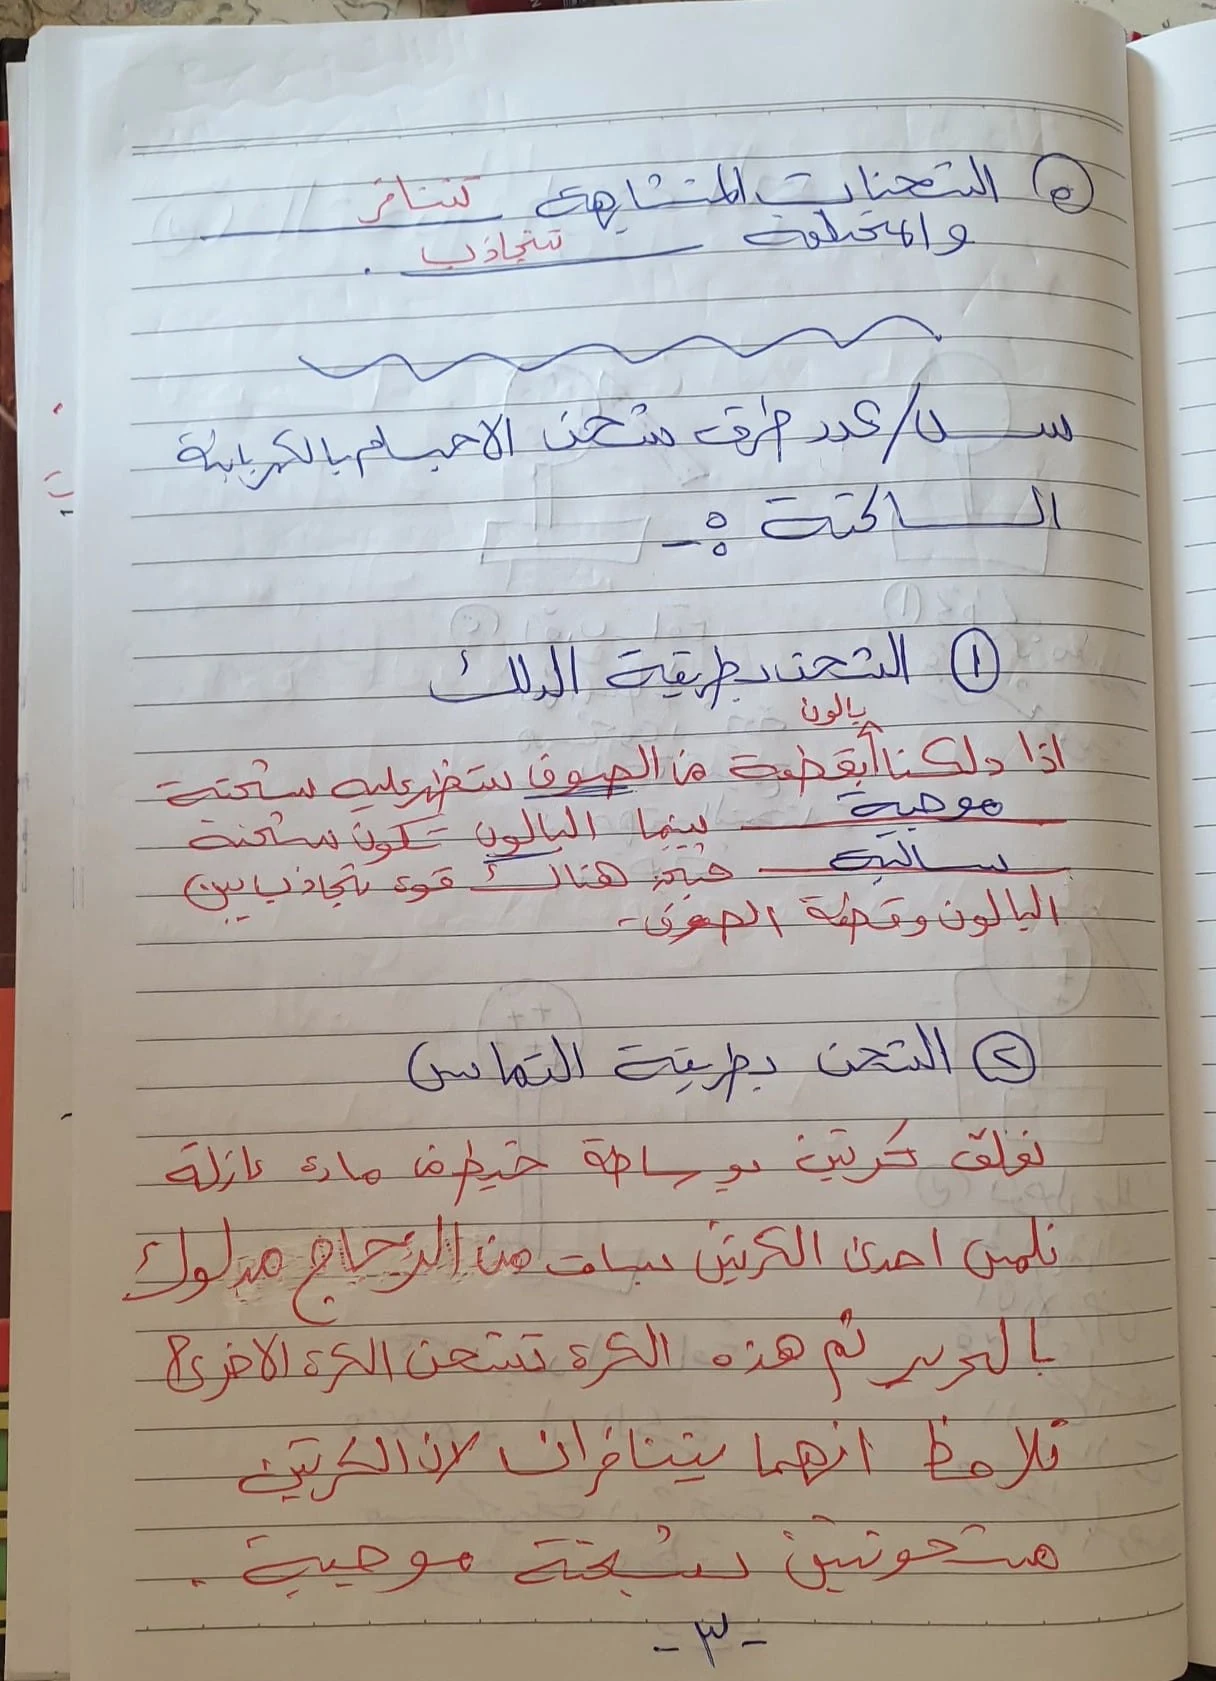 ٥ الشحنات المتشابهة تتنافر
والمختلفة تتجاذب .
س/ عدد طرق شحن الاجسام بالكهربائية
الساكنة :-
١ الشحن بطريقة الدلك
بالون
اذا دلكنا بقطعة من الصوف ستظهر عليه شحنة
موجبة بينما البالون تكون شحنة
سالبة هناك قوة تجاذب بين
البالون وقطعة الصوف -
٢ الشحن بطريقة التماس
نعلق كرتين بوساطة خيط من مادة عازلة
نلمس احدى الكرتين بساق من الزجاج مدلوك
بالحرير ثم هذه الكرة تشحن الكرة الاخرى
نلاحظ انهما يتنافران لان الكرتين
مشحونتين بشحنة موجبة .
-٣-